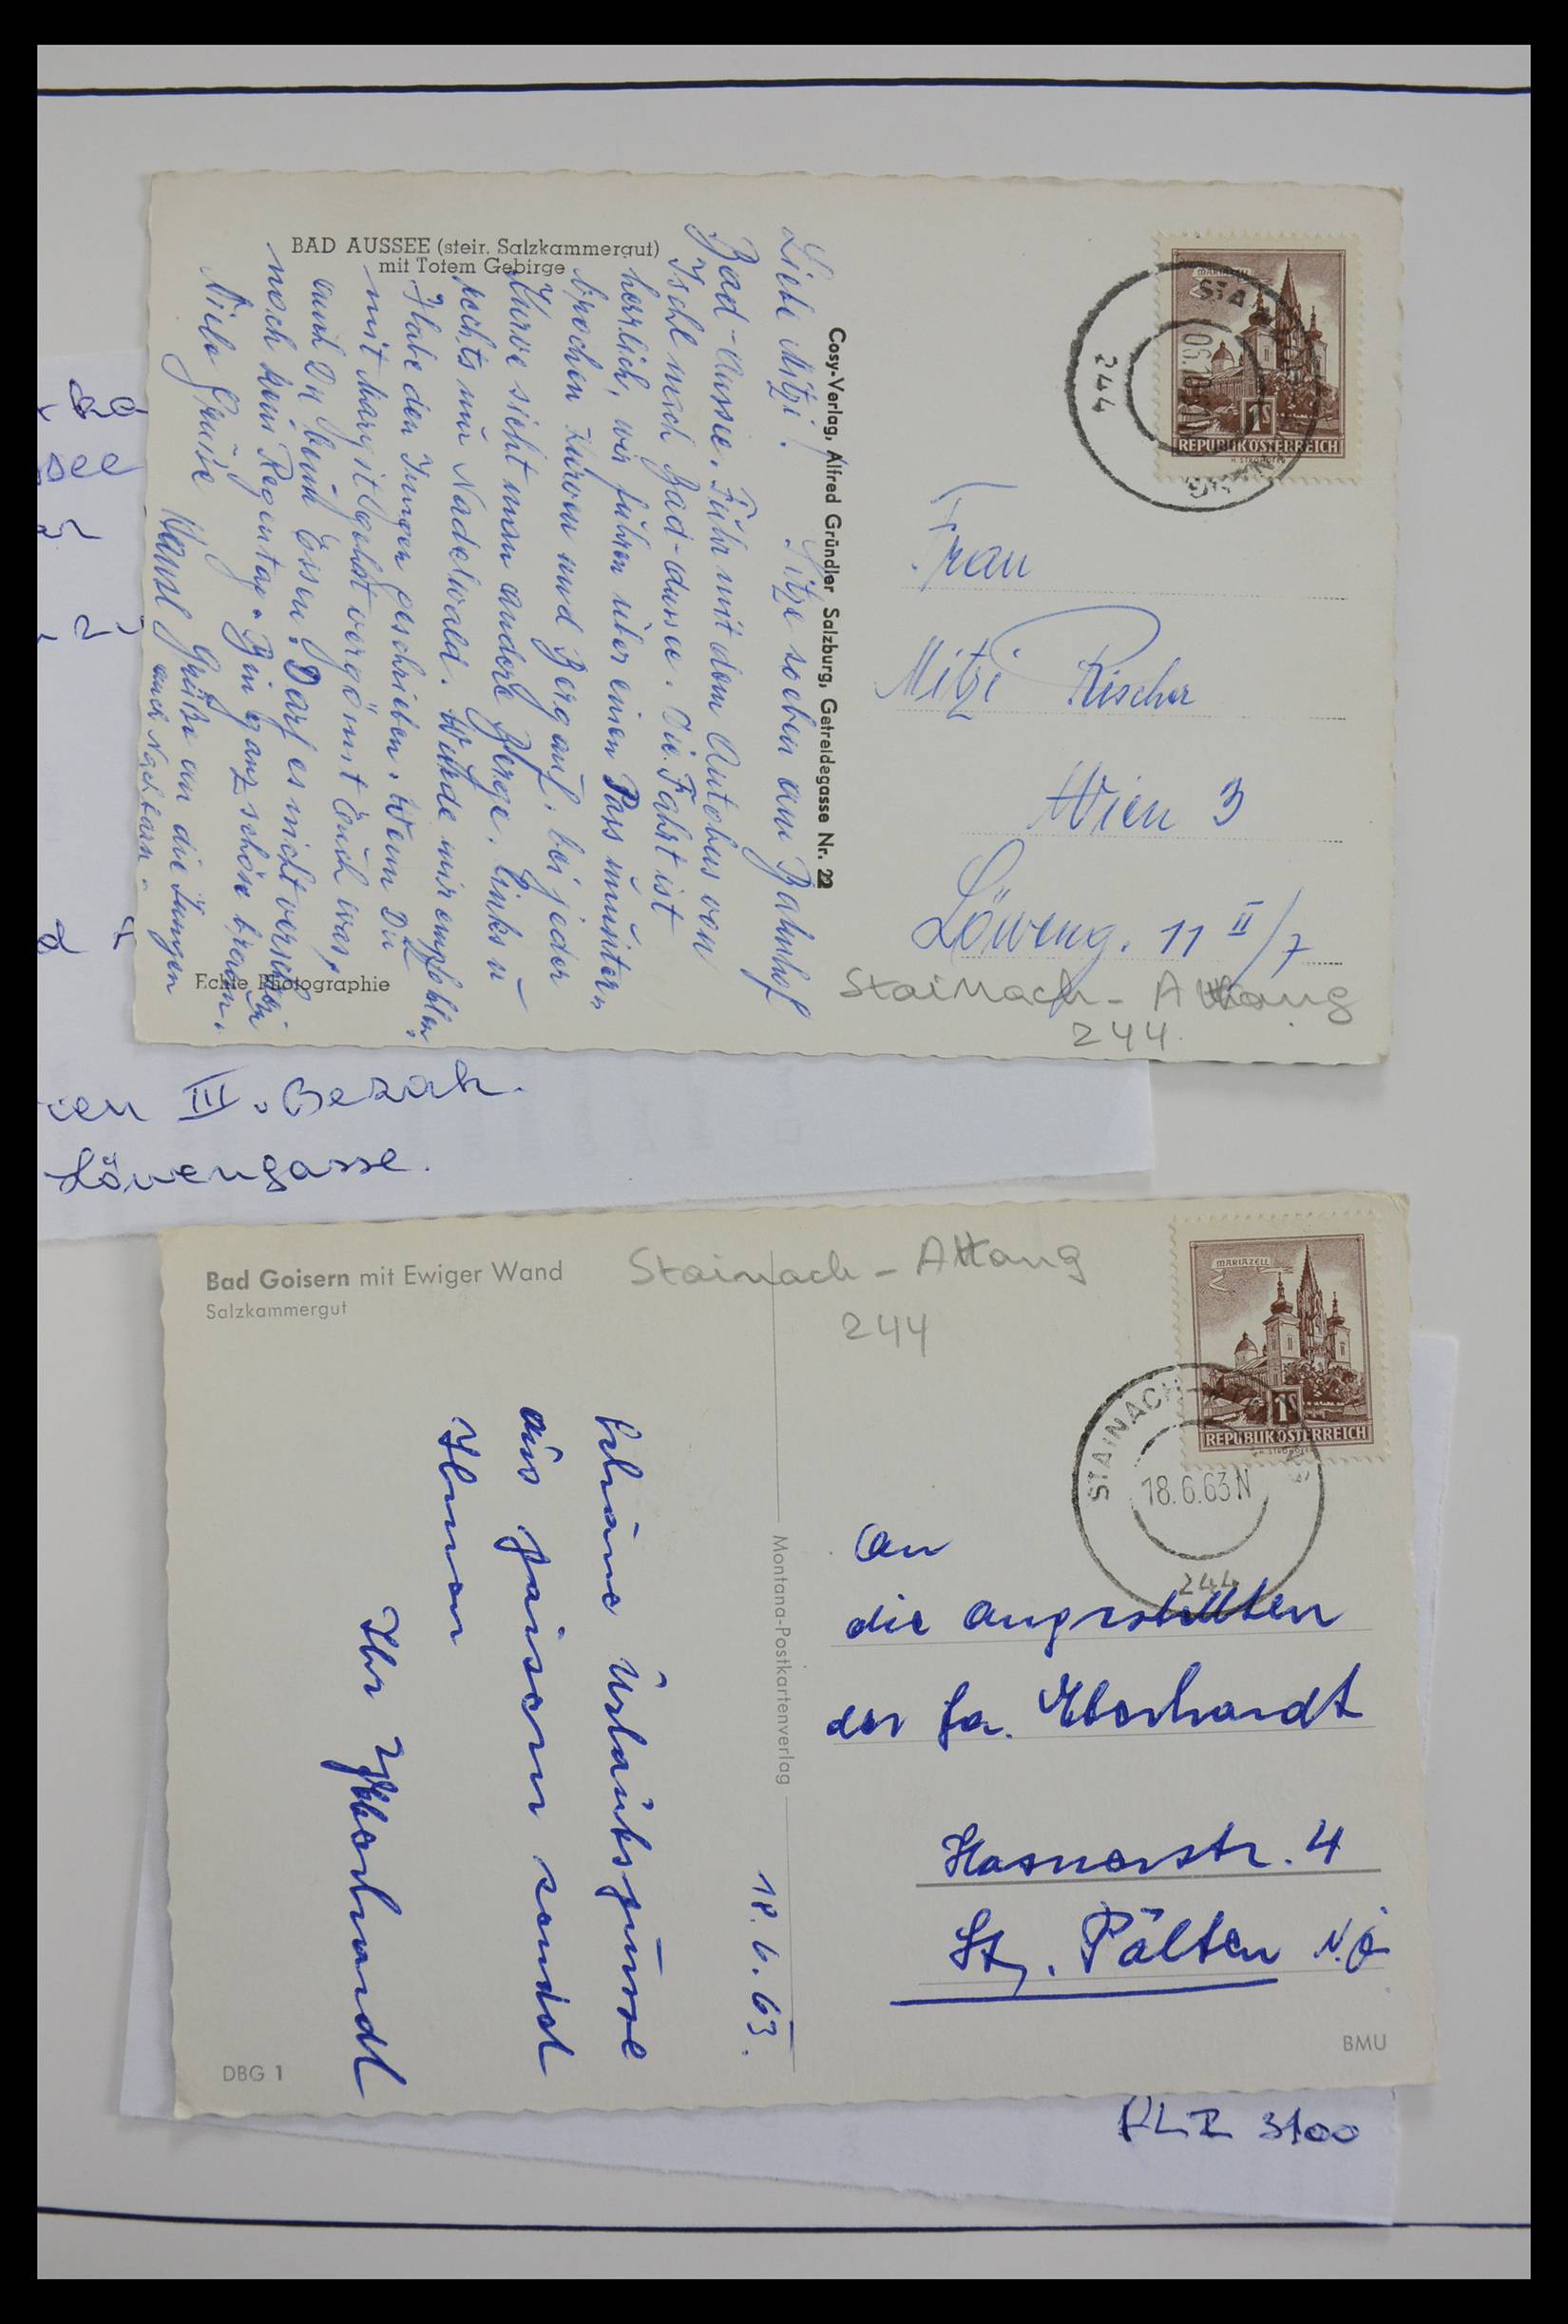 BAD AUSSEE (steir. Salzkammergut)
mit Totem Gebirge
Liebe Mitzi! Sitze soeben am Bahnhof
Bad-Aussee. Fuhr mit dem Autobus von
Ischl nach Bad-Aussee. Die Fahrt ist
herrlich, wir fuhren über einen Pass mitunter
Kurven und Berg auf, bei jeder
Kurve sieht man andere Berge. Links u
rechts nur Nadelwald.
Habe den Jungen geschrieben. Wenn Du
mit Margit vergönnt Euch was,
auch Du beim Essen. Darf es nicht
noch kein Regentag. Bin ganz schön braun.
Viele Grüsse
Grüße an die Jungen
auch Nachbarn.
Echte Photographie
Cosy-Verlag, Alfred Gründler Salzburg, Getreidegasse Nr. 22
MARIAZELL
1S
REPUBLIK ÖSTERREICH
244
Frau
Mitzi Rischer
Wien 3
Löweng. 11 II/7
Stainach - Attang
244
ien III. Bezirk.
Löwengasse.
Bad Goisern mit Ewiger Wand
Salzkammergut
Stainach - Attang
244
MARIAZELL
1S
REPUBLIK ÖSTERREICH
STAINACH
18.6.63N
244
18.6.63.
Schöne Urlaubsgrüsse
aus Goisern sendet
Ihnen
Ihr Eberhardt
Montana-Postkartenverlag
An
die Angestellten
der Fa. Eberhardt
Hasnerstr. 4
St. Pölten N.Ö
DBG 1
BMU
PLZ 3100